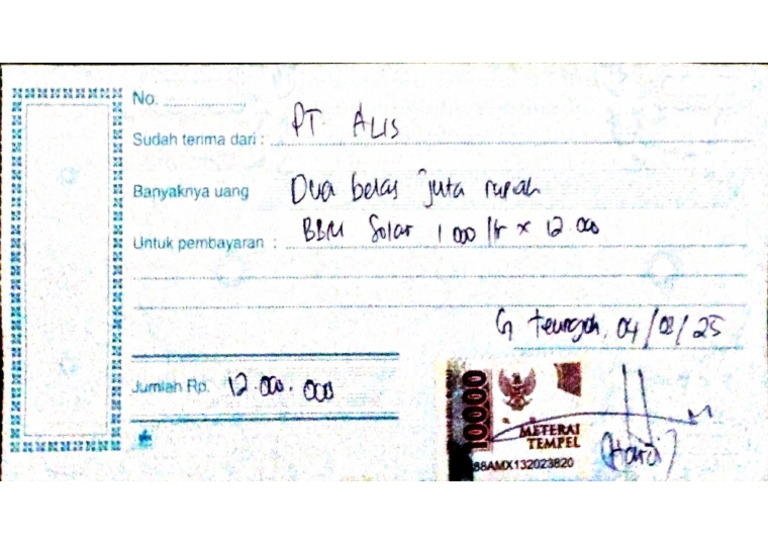 No. ....................
Sudah terima dari : PT ALIS
Banyaknya uang Dua belas juta rupiah
Untuk pembayaran : BBM Solar 1 000 ltr x 12.000
04/08/25
Jumlah Rp. 12.000.000
10000
METERAI
TEMPEL
88AMX132023820
(Hardi)